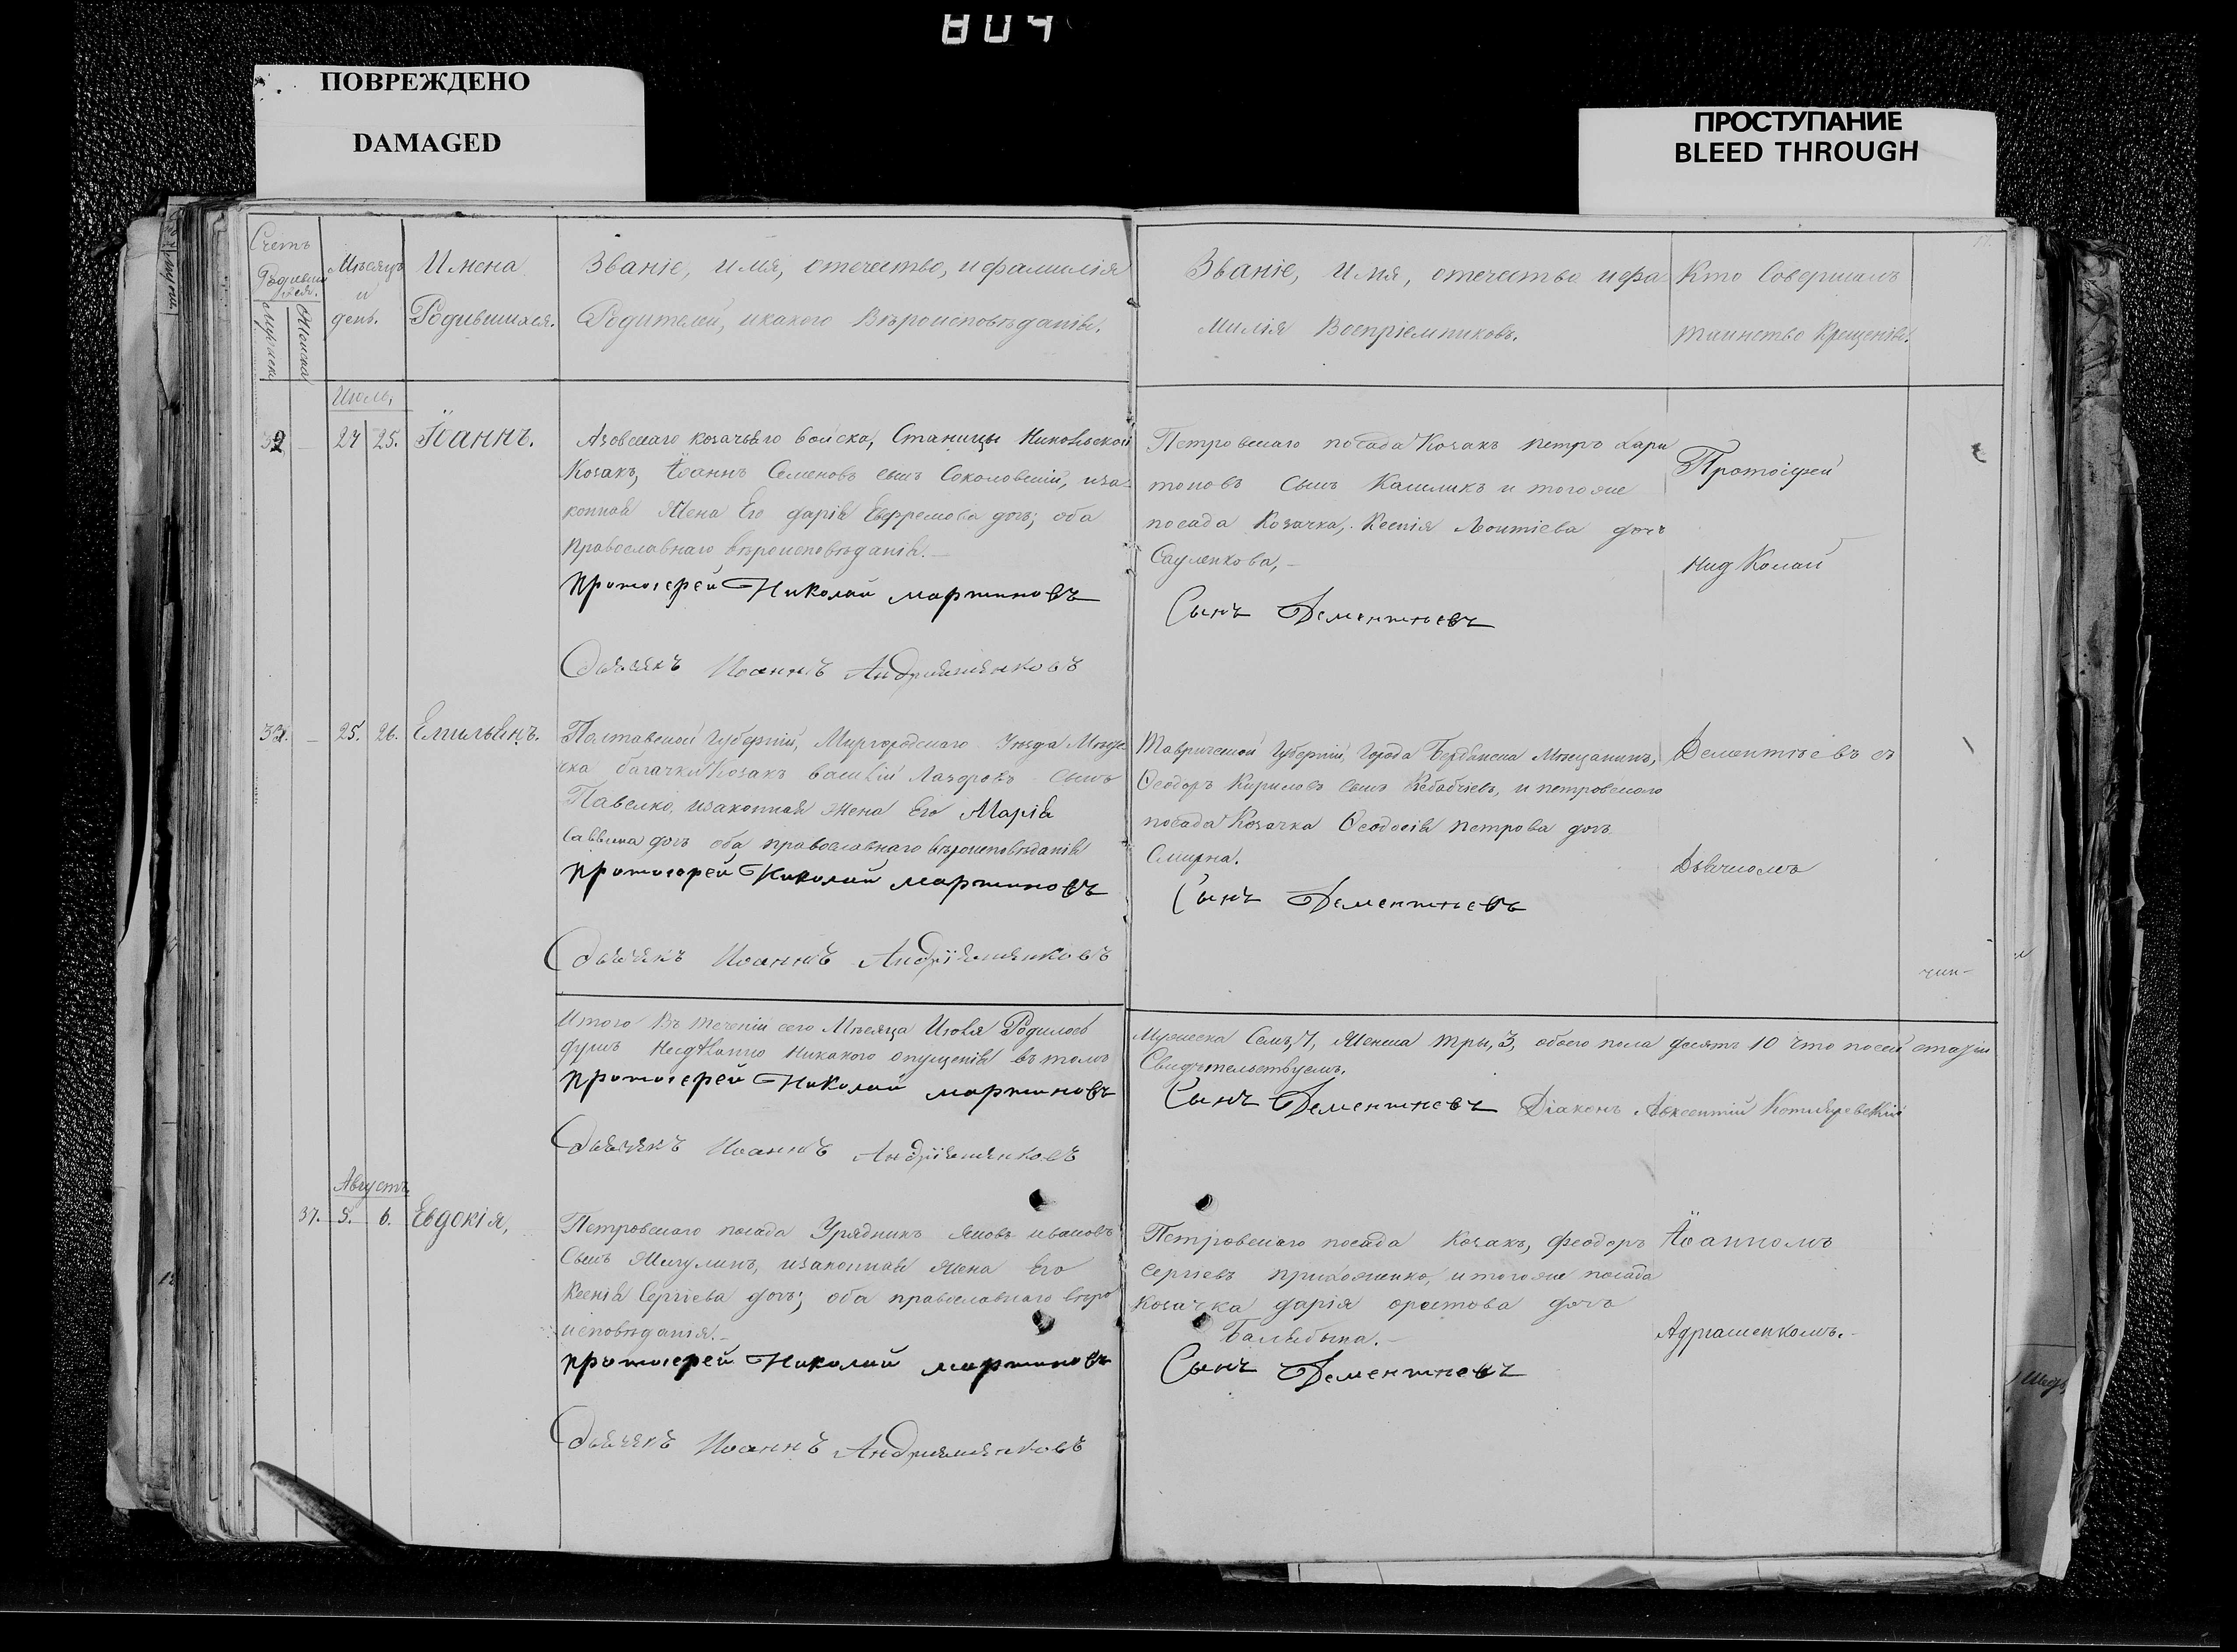 804
ПОВРЕЖДЕНО
DAMAGED
ПРОСТУПАНИЕ
BLEED THROUGH
Счетъ
Родившихся.
Мужеска
Женска
Мѣсяцъ
и
день.
Имена
Родившихся.
Званіе, имя, отечество, и фамилія
Родителей, и какого Вѣроисповѣданія.
Званіе, имя, отечество и фа-
милія Воспріемниковъ.
Кто Совершалъ
таинство Крещенія.
Июль,
24 25. Іоаннъ.
Азовскаго козачьяго войска, Станицы Никольской
Козакъ, Іоаннъ Семеновъ сынъ Соколовскій, иза-
конная Жена Его дарія Евфремова дочь; оба
православнаго вѣроисповѣданія.
протоіерей Николай мартиновъ
Дьячекъ Иоаннъ
Петровскаго посада Козакъ петръ Хари
тоновъ Сынъ и тогоже
посада Козачка, Ксенія Леонтіева дочь
Сауленкова,
Сынъ Дементьевъ
Протоіерей
Николай
25. 26. Емильянъ.
Полтавской Губерніи, Миргородскаго Уѣзда Мѣсте
чка багачки Козакъ Василій сынъ
Павелко, изаконная жена Его Марія
Саввина дочь оба православнаго вѣроисповѣданія
протоіерей Николай мартиновъ
Дьячекъ Иоаннъ
Таврической Губерніи, Города Бердянска Мѣщанинъ,
Ѳеодоръ Кириловъ сынъ и петровскаго
посада Козачка Ѳеодосія петрова дочь
Смирна.
Сынъ Дементьевъ
Дементіевъ съ
Дьячкомъ
Итого Въ теченіи сего Мѣсяца Июля Родилось
душъ никакого опущенія въ томъ
протоіерей Николай мартиновъ
Дьячекъ Иоаннъ
Мужеска Семъ, 7, Женска три, 3, обоего пола десять 10 Что
Свидѣтельствуемъ.
Сынъ Дементьевъ Діаконъ Авксентій Котляревскій
Августъ
37. 5. 6. Евдокія,
Петровскаго посада Урядникъ Яковъ ивановъ
Сынъ Жигулинъ, изаконная Жена Его
Ксенія Сергіева дочь; оба православнаго вѣро
исповѣданія.
протоіерей Николай мартиновъ
Дьячекъ Иоаннъ
Петровскаго посада Козакъ, феодоръ
Сергіевъ приходженко, итогоже посада
Козачка дарія орестова дочь
Сынъ Дементьевъ
Іоанномъ